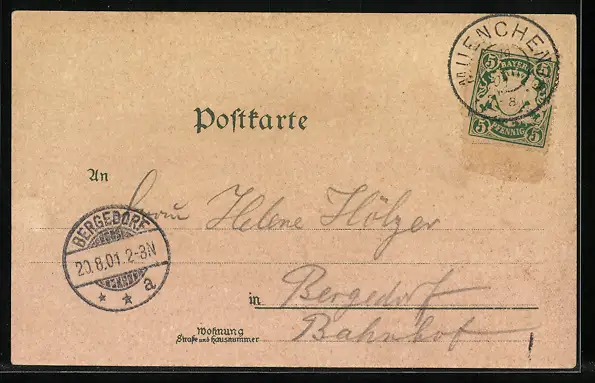 MUENCHEN
5 BAYERN 5
5 PFENNIG 5
Postkarte
An
Frau Helene Hölzer
BERGEDORF
20.8.01.2-3N
* * a
in Bergedorf
Wohnung
Straße und Hausnummer
Bahnhof